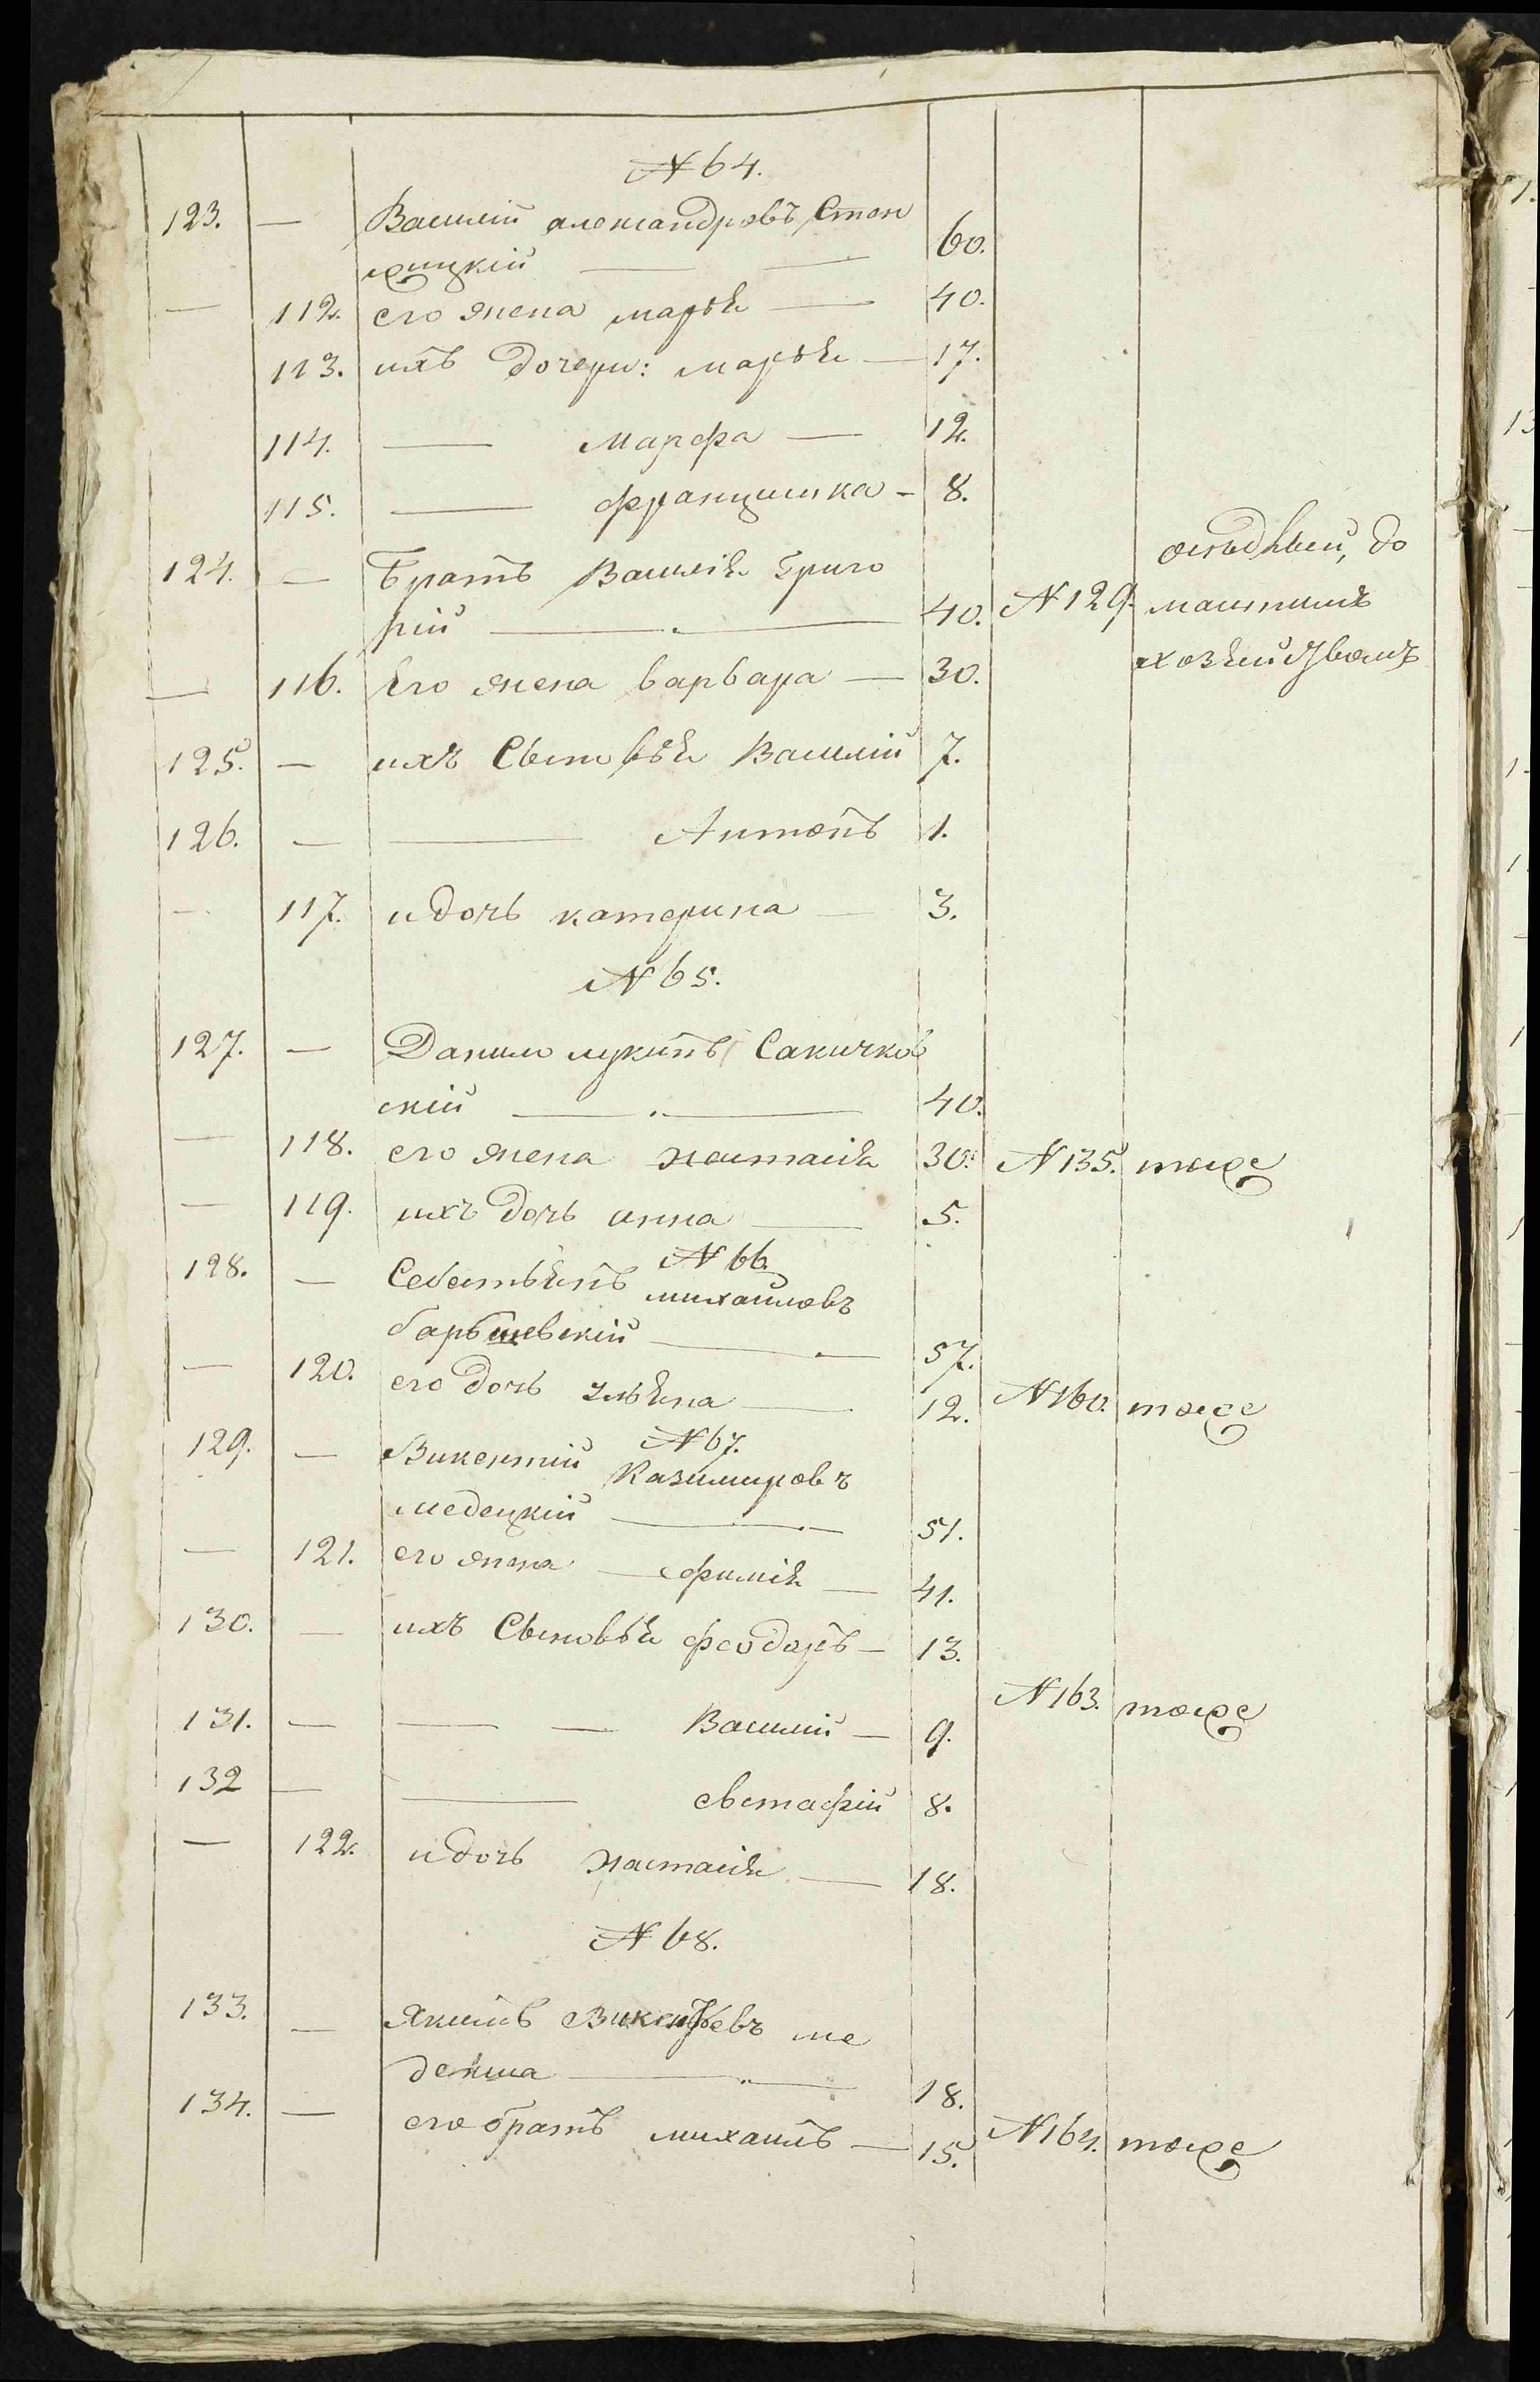 № 64.
123. — Василий александровъ Стон
жицкiй — — 60.
— 112. его жена марья — 40.
113. ихъ дочери: марья — 17.
114. — Марфа — 12.
115. — францишка — 8.
оседлый, до
124. — Братъ Василiя Григо
рiй — 40. № 129. машнимъ
— 116. Его жена варвара — 30. хозяйствомъ
125. — ихъ Сыновья Василiй 7.
126. — — Антонъ 1.
— 117. и дочь катерина — 3.
№ 65.
127. — Данило лукинъ Сакичков
скiй — 40.
— 118. его жена настасiя 30. № 135. тоже
— 119. ихъ дочь анна — 5.
№ 66.
128. — Себастьянъ михайловъ
барышевскiй — 57.
— 120. его дочь ульяна — 12. № 160. тоже
№ 67.
129. — Викентiй Казимировъ
медецкiй — 51.
— 121. его жена — офимiя — 41.
130. — ихъ Сыновья феодоръ — 13.
№ 163. тоже
131. — — — Василiй — 9.
132 — — евстафiй 8.
— 122. и дочь настасiя — 18.
№ 68.
133. — Якимъ Викентьевъ ме
декша — 18.
134. — его братъ михаилъ — 15. № 164. тоже